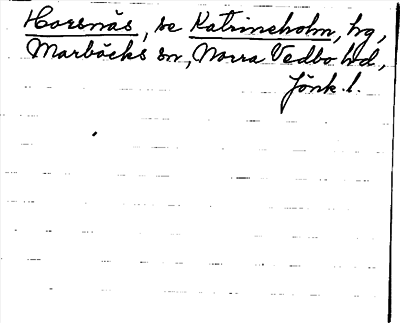 Horsnäs, se Katrineholm, hg,
Marbäcks sn, Norra Vedbo hd,
Jönk. l.